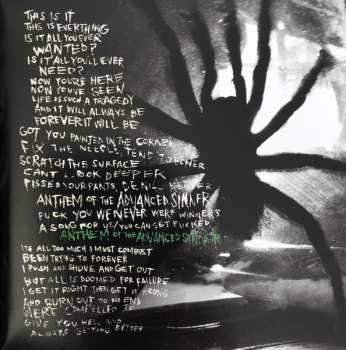 THIS IS IT
THIS IS EVERYTHING
IS IT ALL YOU EVER
WANTED?
IS IT ALL YOU'LL EVER
NEED?
NOW YOU'RE HERE
NOW YOU'VE SEEN
LIFE IS SUCH A TRAGEDY
AND IT WILL ALWAYS BE
FOREVER IT WILL BE
GOT YOU PAINTED IN THE CORNER
FIX THE NEEDLE, TEND TO HER
SCRATCH THE SURFACE
CANT LOOK DEEPER
PISSED YOUR PANTS,
ANTHEM OF THE ADVANCED SINNER
FUCK YOU WE NEVER WERE WINNERS
A SONG FOR US/YOU CAN GET FUCKED
ANTHEM OF THE ADVANCED SINNER
ITS ALL TOO MUCH I MUST COMBUST
BEEN TRYING TO FOREVER
I PUSH AND SHOVE AND GET OUT
BUT ALL IS DOOMED FOR FAILURE
I GET IT RIGHT THEN GET IT WRONG
AND BURN OUT TO NO END
WERE COMPELLED TO
GIVE YOU HELL AND
ALWAYS GETTING BETTER